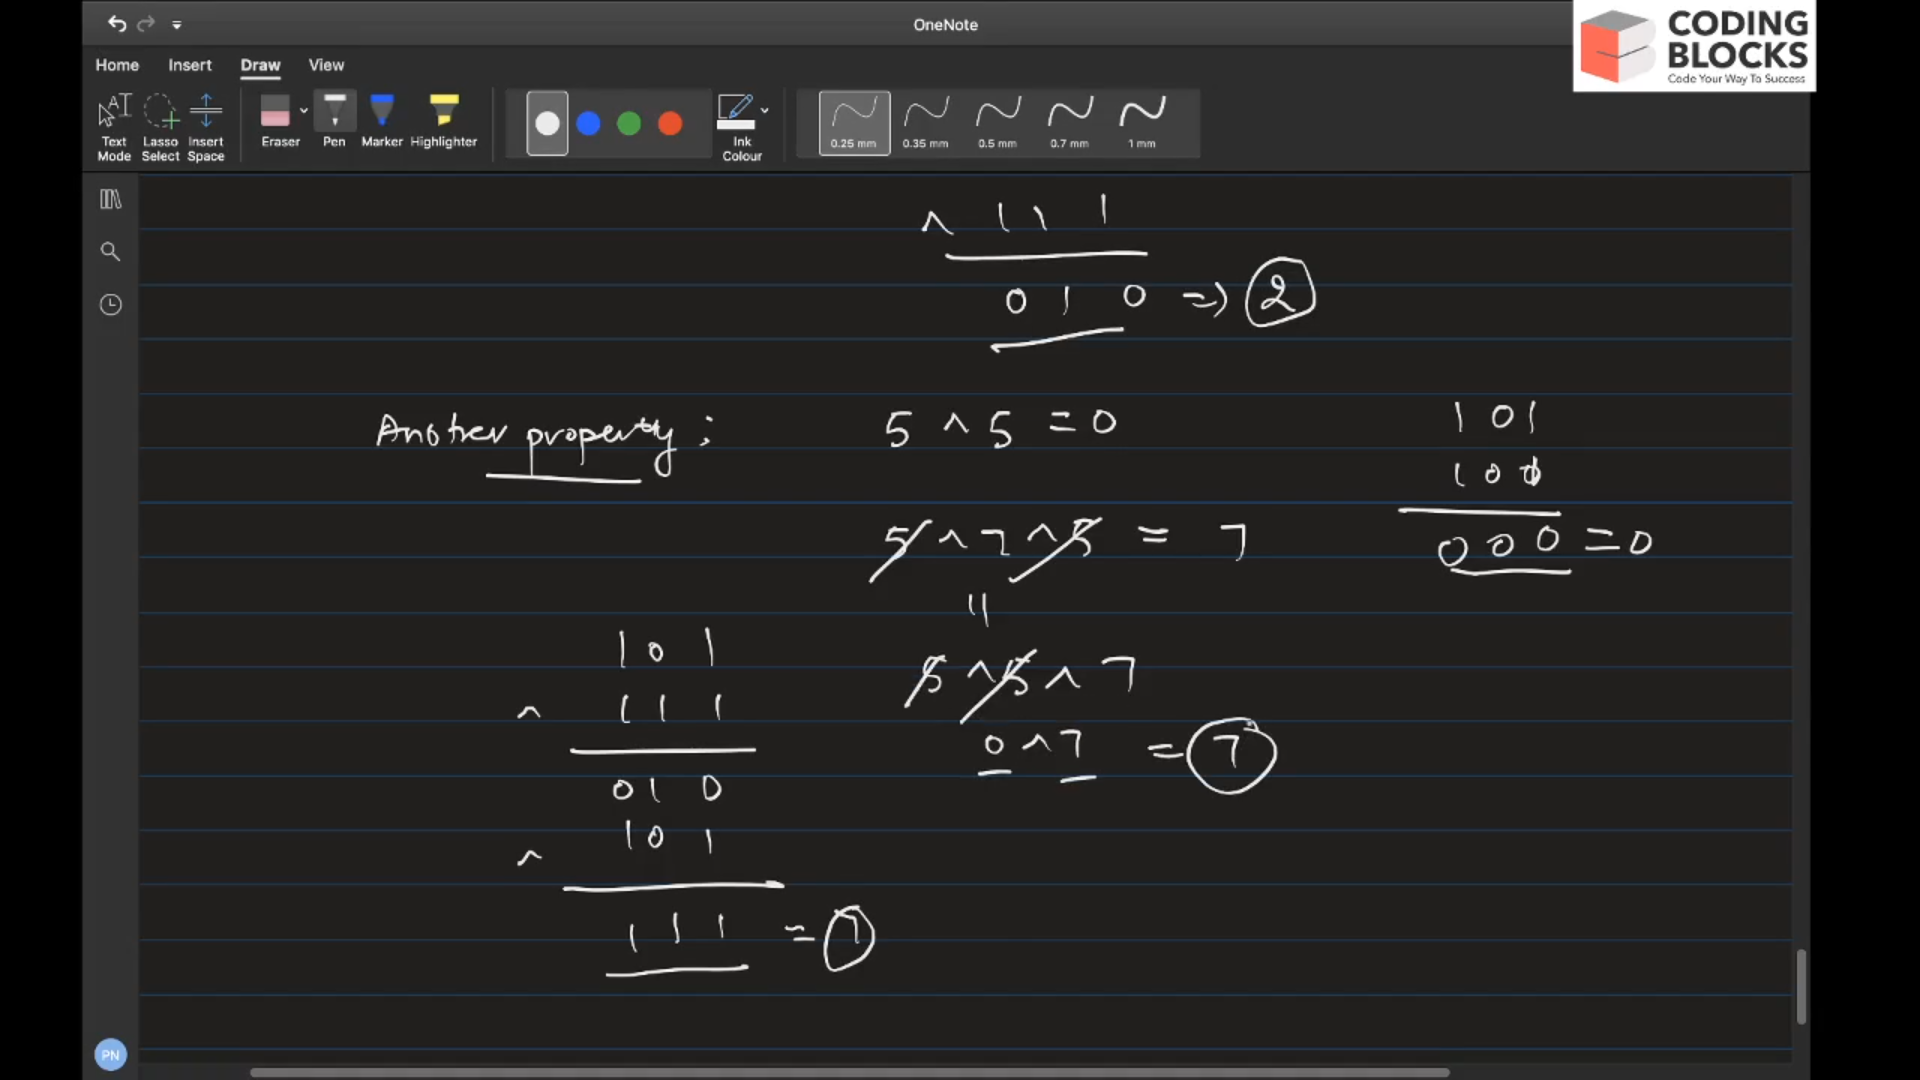 OneNote
CODING
BLOCKS
Code Your Way To Success
Home Insert Draw View
Text Mode
Lasso Select
Insert Space
Eraser
Pen
Marker
Highlighter
Ink Colour
0.25 mm
0.35 mm
0.5 mm
0.7 mm
1 mm
^ 1 1 1
0 1 0 => 2
Another property : 5 ^ 5 = 0
1 0 1
1 0 1
0 0 0 = 0
5 ^ 7 ^ 5 = 7
||
5 ^ 5 ^ 7
0 ^ 7 = 7
1 0 1
^ 1 1 1
0 1 0
^ 1 0 1
1 1 1 = 7
PN